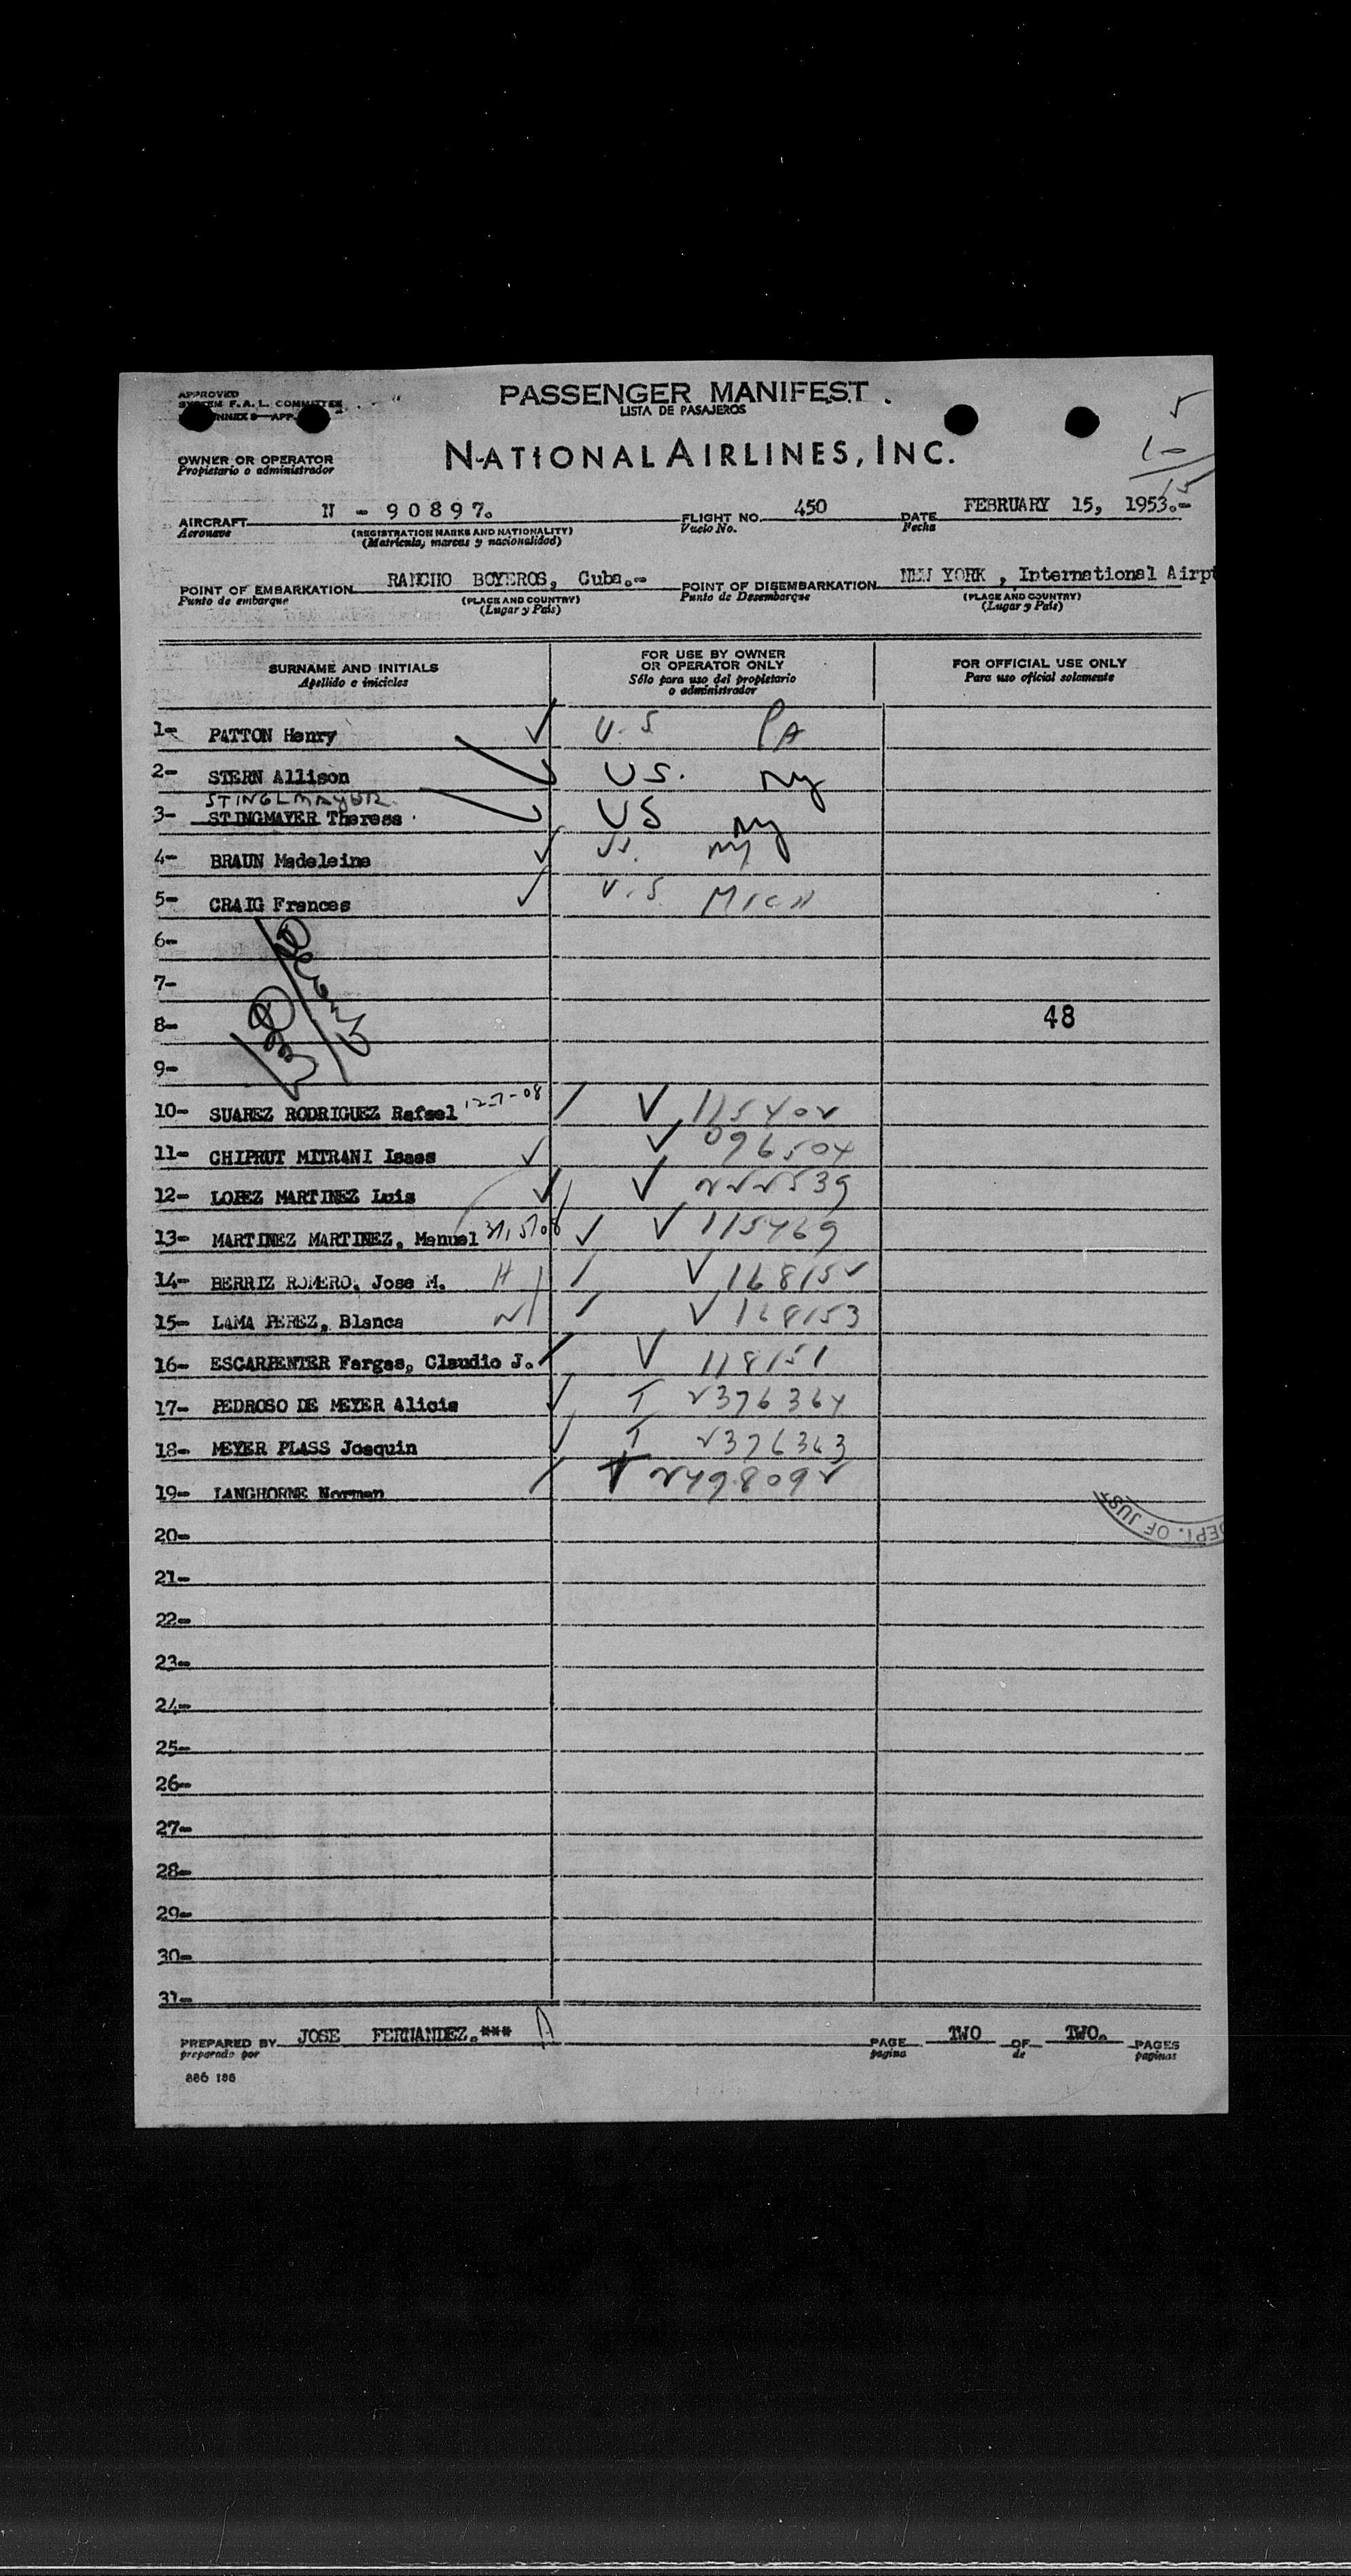 APPROVED
PASSENGER MANIFEST.
SYSTEM F. A. L. COMMITTEE
LISTA DE PASAJEROS
ANNEX 9—APP.
5
10
15
OWNER OR OPERATOR
Propietario o administrador
NATIONAL AIRLINES, INC.
AIRCRAFT N - 90897. FLIGHT NO. 450 DATE FEBRUARY 15, 1953.-
Aeronave (REGISTRATION MARKS AND NATIONALITY) Vuelo No. Fecha
(Matricula, marcas y nacionalidad)
POINT OF EMBARKATION RANCHO BOYEROS, Cuba.- POINT OF DISEMBARKATION NEW YORK , International Airpt
Punto de embarque (PLACE AND COUNTRY) Punto de Desembarque (PLACE AND COUNTRY)
(Lugar y País) (Lugar y País)
SURNAME AND INITIALS FOR USE BY OWNER OR OPERATOR ONLY FOR OFFICIAL USE ONLY
Apellido e iniciales Sólo para uso del propietario o administrador Para uso oficial solamente
1- PATTON Henry ✓ U.S PA
2- STERN Allison US. NY
STINGLMAYER
3- STINGMAYER Theresa US NY
4- BRAUN Madeleine ✓ U.S. NY
5- CRAIG Frances ✓ U.S. MICH
6-
7-
8- 48
9-
10- SUAREZ RODRIGUEZ Rafael 12-7-08 / ✓ 115402
11- CHIPRUT MITRANI Isaas ✓ ✓ 096504
12- LOPEZ MARTINEZ Luis ✓ ✓ 222539
13- MARTINEZ MARTINEZ, Manuel ✓ ✓ 115469
14- BERRIZ ROMERO, Jose M. H / V 168152
15- LAMA PEREZ, Blanca W / V 168153
16- ESCARPENTER Fargas, Claudio J. / V 118151
17- PEDROSO DE MEYER Alicia ✓ T 2376364
18- MEYER PLASS Joaquin ✓ T 2376363
19- LANGHORNE Norman / T 2498092
DEPT. OF JUST
20-
21-
22-
23-
24-
25-
26-
27-
28-
29-
30-
31-
PREPARED BY JOSE FERNANDEZ.*** PAGE TWO OF TWO. PAGES
preparado por pagina de paginas
886 186